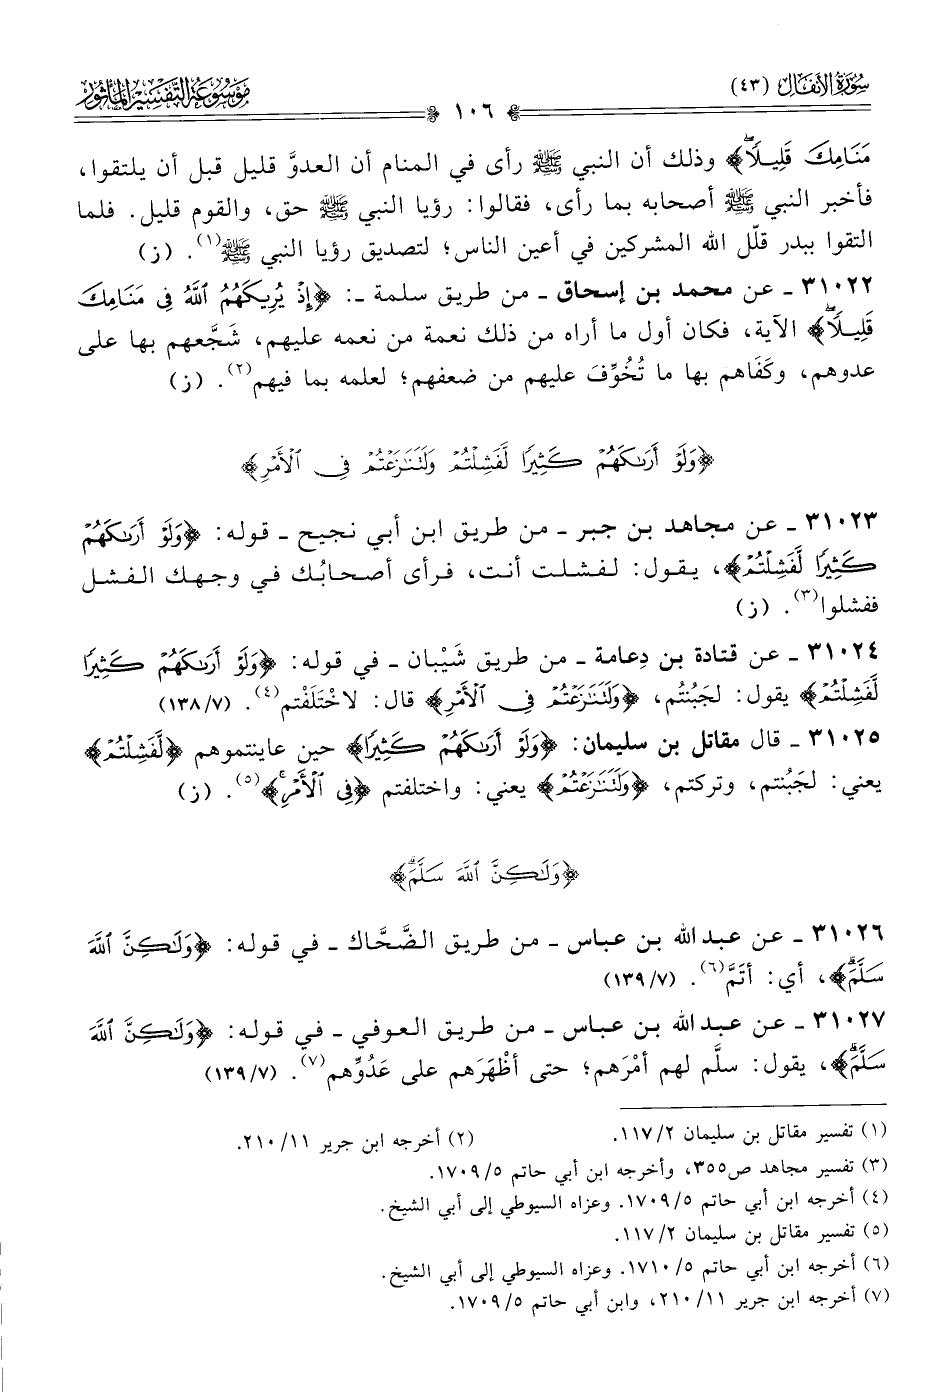 سُورَةُ الأَنفَال (٤٣)
١٠٦
مَوْسُوعَةُ التَّفْسِيرِ المَأْثُور
مَنَامِكَ قَلِيلًاۖ﴾ وذلك أن النبي ﷺ رأى في المنام أن العدوَّ قليل قبل أن يلتقوا،
فأخبر النبي ﷺ أصحابه بما رأى، فقالوا: رؤيا النبي ﷺ حق، والقوم قليل. فلما
التقوا ببدر قلّل الله المشركين في أعين الناس؛ لتصديق رؤيا النبي ﷺ(١). (ز)
٣١٠٢٢ ـ عن محمد بن إسحاق ـ من طريق سلمة ـ: ﴿إِذْ يُرِيكَهُمُ ٱللَّهُ فِى مَنَامِكَ
قَلِيلًاۖ﴾ الآية، فكان أول ما أراه من ذلك نعمة من نعمه عليهم، شَجَّعهم بها على
عدوهم، وكَفَاهم بها ما تُخُوِّفَ عليهم من ضعفهم؛ لعلمه بما فيهم(٢). (ز)
﴿وَلَوْ أَرَىٰكَهُمْ كَثِيرًا لَّفَشِلْتُمْ وَلَتَنَٰزَعْتُمْ فِى ٱلْأَمْرِ﴾
٣١٠٢٣ ـ عن مجاهد بن جبر ـ من طريق ابن أبي نجيح ـ قوله: ﴿وَلَوْ أَرَىٰكَهُمْ
كَثِيرًا لَّفَشِلْتُمْ﴾، يقول: لفشلت أنت، فرأى أصحابُك في وجهك الفشل
ففشلوا(٣). (ز)
٣١٠٢٤ ـ عن قتادة بن دِعامة ـ من طريق شَيْبان ـ في قوله: ﴿وَلَوْ أَرَىٰكَهُمْ كَثِيرًا
لَّفَشِلْتُمْ﴾ يقول: لجَبُنتُم، ﴿وَلَتَنَٰزَعْتُمْ فِى ٱلْأَمْرِ﴾ قال: لاخْتَلَفْتم(٤). (٧/ ١٣٨)
٣١٠٢٥ ـ قال مقاتل بن سليمان: ﴿وَلَوْ أَرَىٰكَهُمْ كَثِيرًا﴾ حين عاينتموهم ﴿لَّفَشِلْتُمْ﴾
يعني: لجَبُنتم، وتركتم، ﴿وَلَتَنَٰزَعْتُمْ﴾ يعني: واختلفتم ﴿فِى ٱلْأَمْرِۚ﴾(٥). (ز)
﴿وَلَٰكِنَّ ٱللَّهَ سَلَّمَۗ﴾
٣١٠٢٦ ـ عن عبد الله بن عباس ـ من طريق الضَّحَّاك ـ في قوله: ﴿وَلَٰكِنَّ ٱللَّهَ
سَلَّمَۗ﴾، أي: أتَمَّ(٦). (٧/ ١٣٩)
٣١٠٢٧ ـ عن عبد الله بن عباس ـ من طريق العوفي ـ في قوله: ﴿وَلَٰكِنَّ ٱللَّهَ
سَلَّمَۗ﴾، يقول: سلَّم لهم أمْرَهم؛ حتى أظْهَرَهم على عَدُوِّهم(٧). (٧/ ١٣٩)
(١) تفسير مقاتل بن سليمان ٢/ ١١٧. (٢) أخرجه ابن جرير ١١/ ٢١٠.
(٣) تفسير مجاهد ص٣٥٥، وأخرجه ابن أبي حاتم ٥/ ١٧٠٩.
(٤) أخرجه ابن أبي حاتم ٥/ ١٧٠٩. وعزاه السيوطي إلى أبي الشيخ.
(٥) تفسير مقاتل بن سليمان ٢/ ١١٧.
(٦) أخرجه ابن أبي حاتم ٥/ ١٧١٠. وعزاه السيوطي إلى أبي الشيخ.
(٧) أخرجه ابن جرير ١١/ ٢١٠، وابن أبي حاتم ٥/ ١٧٠٩.